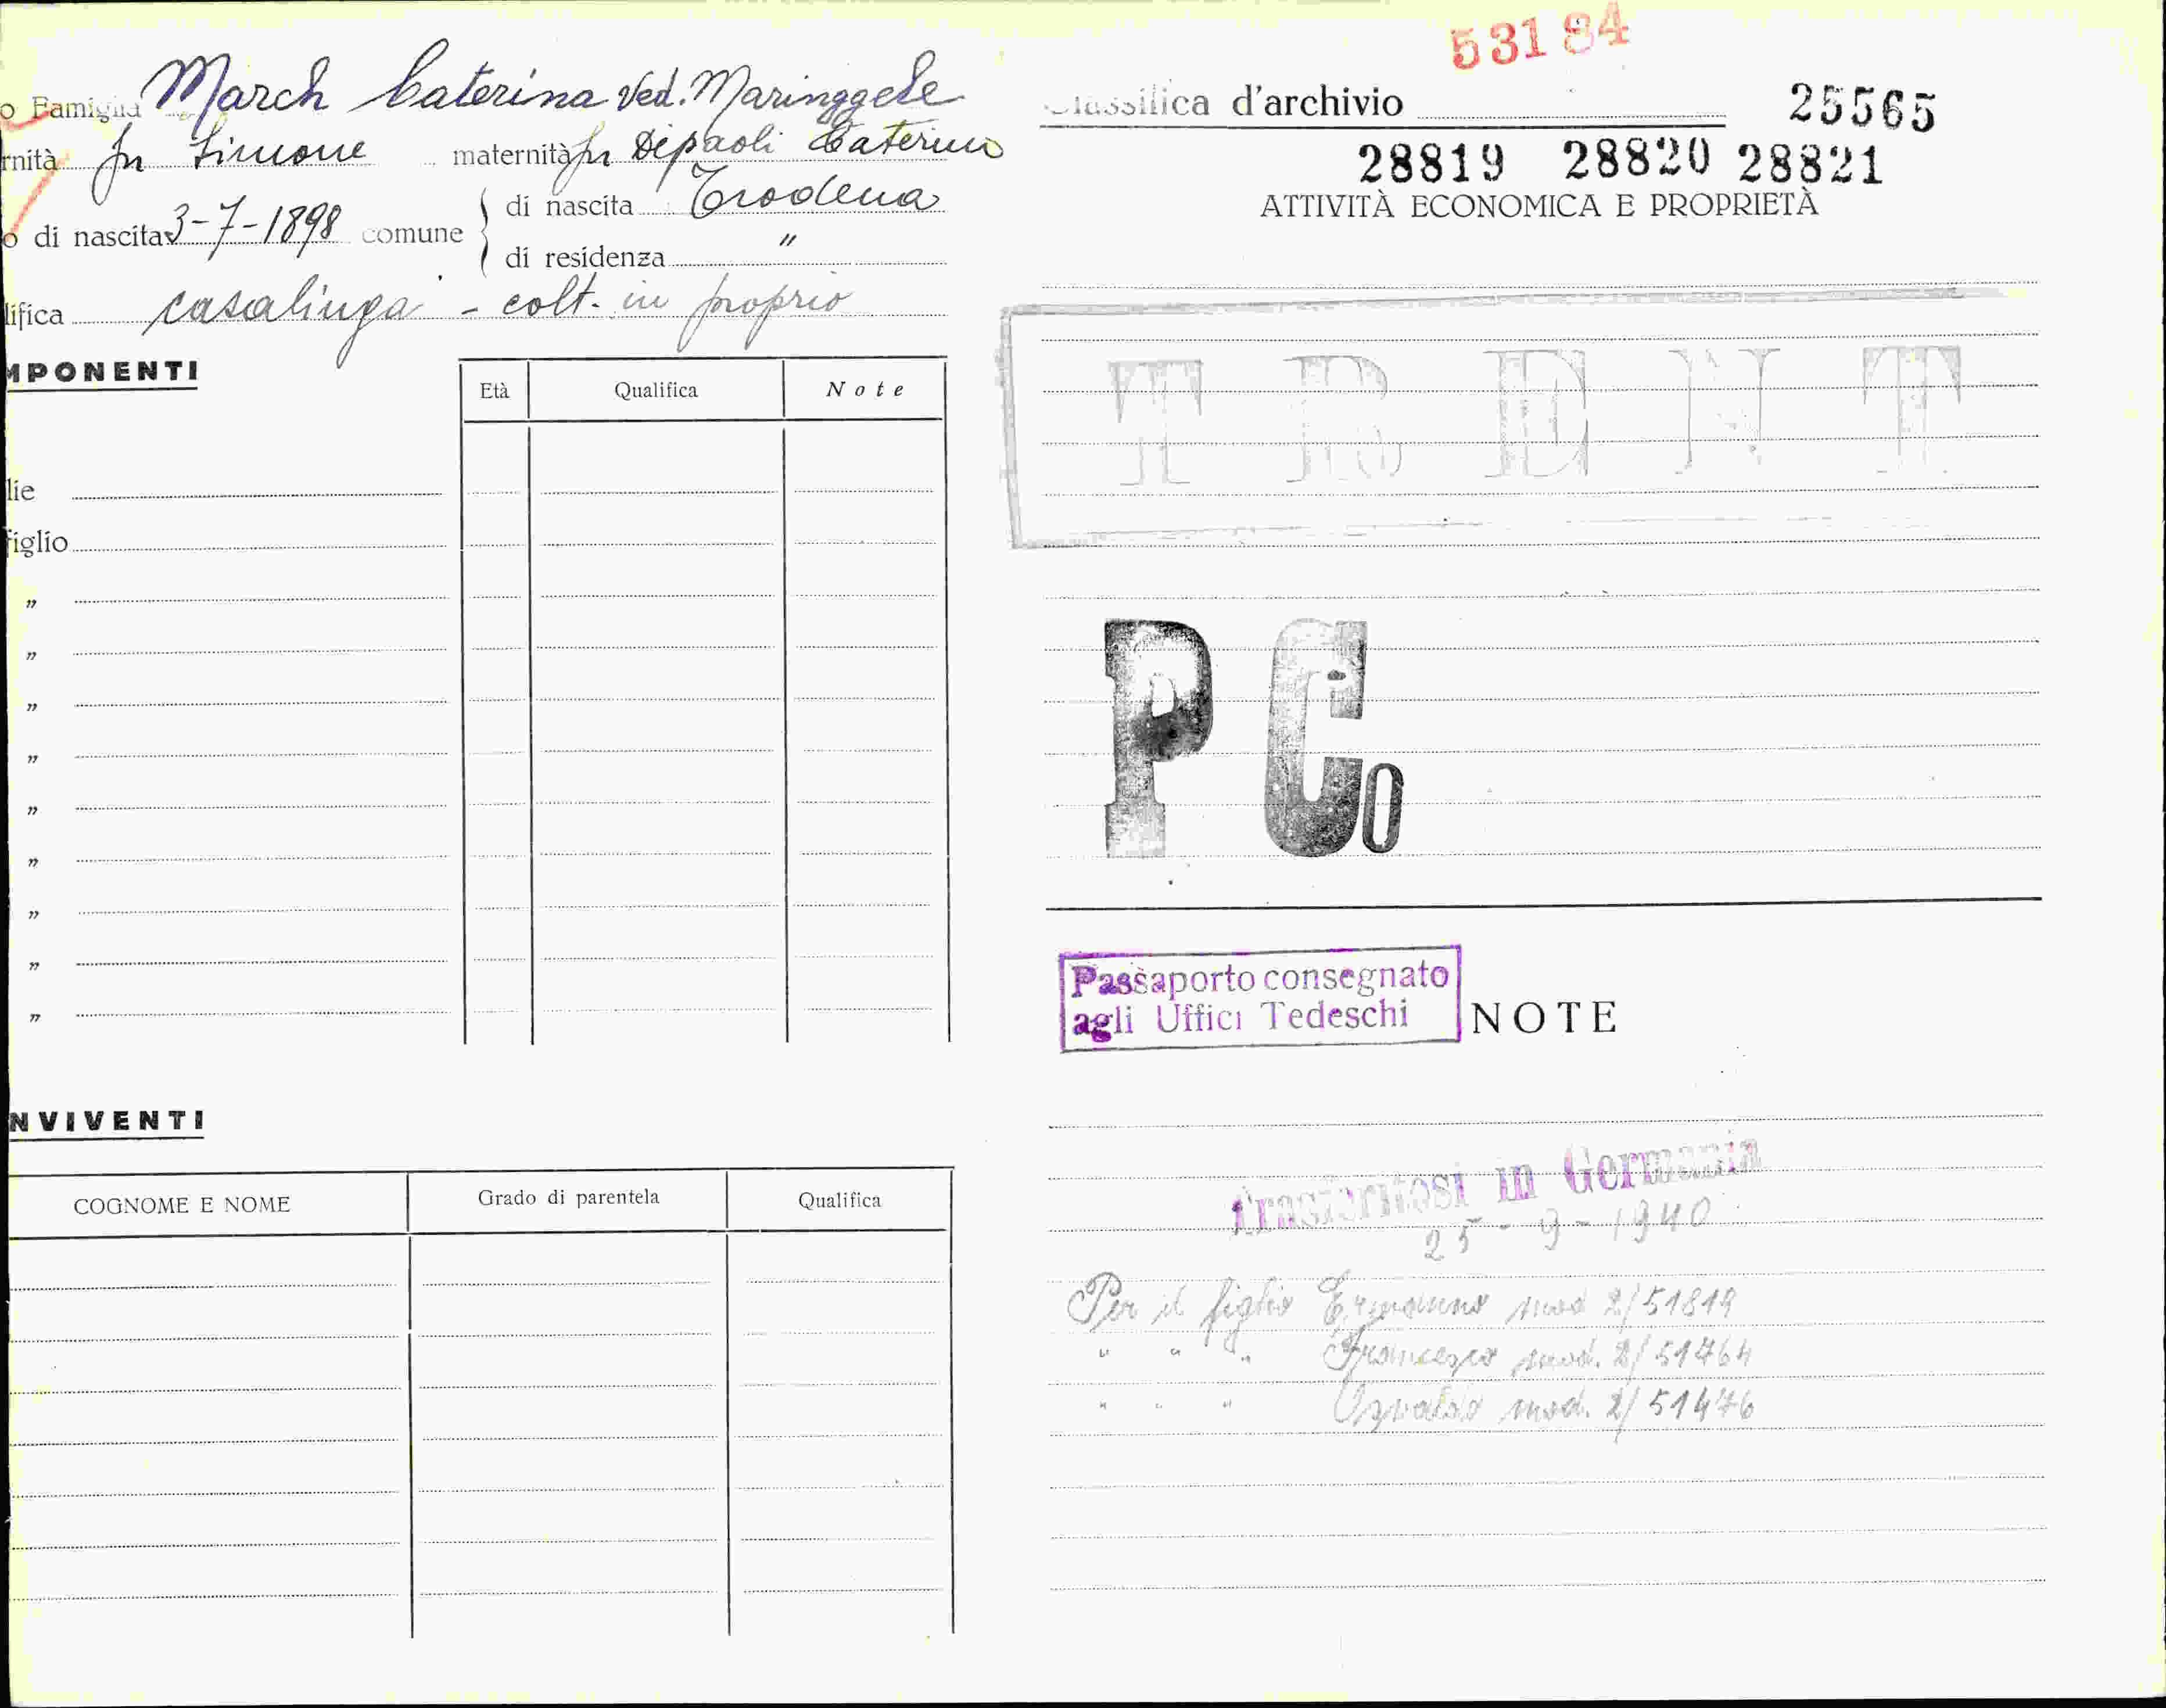 53184
o Famiglia March Caterina ved. Maringgele
rnità fu Simone maternità fu Depaoli Caterina
o di nascita 3-7-1898 comune di nascita Trodena
di residenza "
lifica casalinga - colt. in proprio
MPONENTI
Età Qualifica Note
lie
figlio
"
"
"
"
"
"
"
"
"
NVIVENTI
COGNOME E NOME Grado di parentela Qualifica
Classifica d'archivio 25565
28819 28820 28821
ATTIVITÀ ECONOMICA E PROPRIETÀ
TRENT
P Co
Passaporto consegnato
agli Uffici Tedeschi
NOTE
trasferitosi in Germania
25-9-1940
Per il figlio Ermanno mod 2/51819
" " " Francesco mod. 2/51764
" " " Osvaldo mod. 2/51476